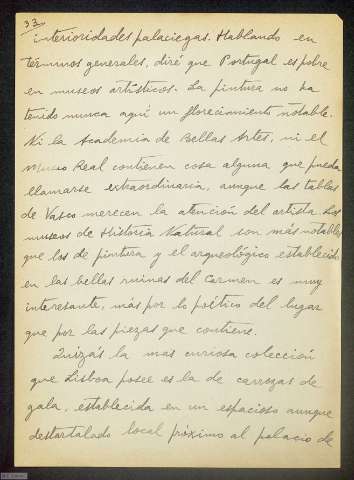 33
interioridades palaciegas. Hablando en
términos generales, diré que Portugal es pobre
en museos artísticos. La pintura no ha
tenido nunca aquí un florecimiento notable.
Ni la Academia de Bellas Artes, ni el
Museo Real contienen cosa alguna que pueda
llamarse extraordinaria, aunque las tablas
de Vasco merecen la atención del artista. Los
museos de Historia Natural son más notables
que los de pintura y el arqueológico establecido
en las bellas ruinas del Carmen es muy
interesante, más por lo poético del lugar
que por las piezas que contiene.
Quizás la mas curiosa colección
que Lisboa posee es la de carrozas de
gala, establecida en un espacioso aunque
destartalado local próximo al palacio de